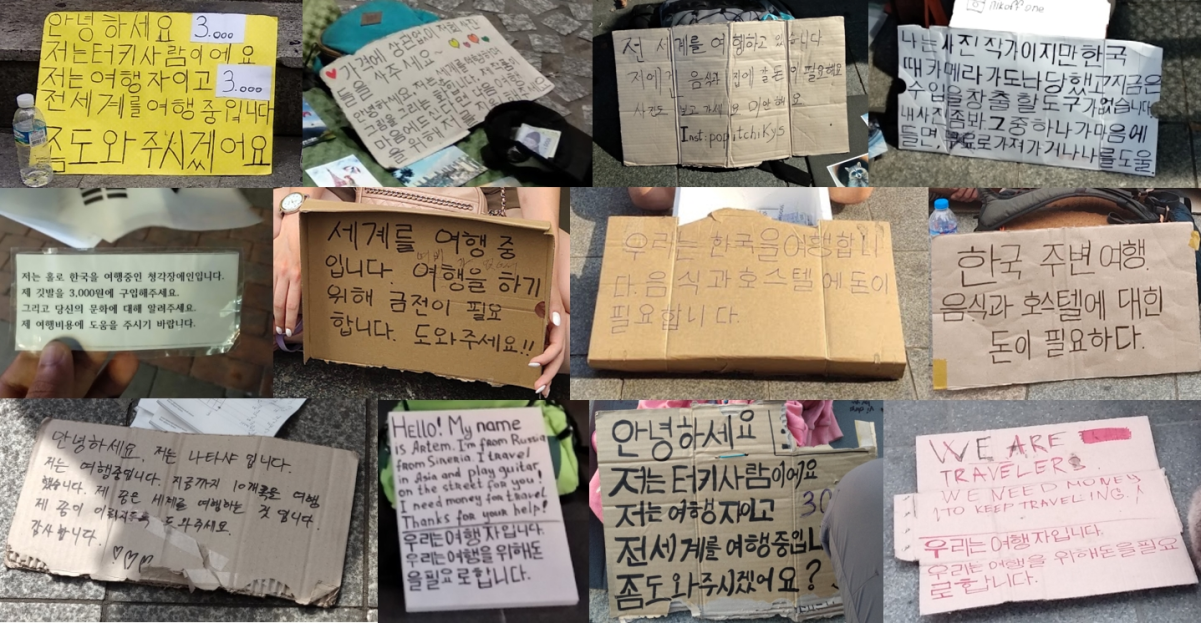 안녕하세요
3.000
저는터키사람이에요
저는여행자이고
3.000
전세계를여행중입니다
좀도와주시겠어요
가격에 상관없이 자유롭게
사주세요~
안녕하세요. 저는
그림을
마음에드
을 위해 저를
전 세계를 여행하고 있습니다
저에게 음식과 집에 갈 돈이 필요해요
사진도 보고 가세요 미안해요
Inst: poputchikys
nikoff one
나는사진 작가이지만한국
때카메라가도난당했고지금은
수입을창출할도구가없습니다
내사진좀봐그중하나가마음에
들면, 무료로가져가거나나를도울.
저는 홀로 한국을 여행중인 청각장애인입니다.
제 깃발을 3,000원에 구입해주세요.
그리고 당신의 문화에 대해 알려주세요.
제 여행비용에 도움을 주시기 바랍니다.
세계를 여행 중
입니다. 여행을 하기
위해 금전이 필요
합니다. 도와주세요!!
우리는 한국을여행합니
다.음식과호스텔에돈이
필요합니다.
한국 주변 여행.
음식과 호스텔에 대한
돈이 필요하다.
안녕하세요. 저는 나타샤 입니다.
저는 여행중입니다. 지금까지 10개국을 여행
했습니다. 제 꿈은 세계를 여행하는 것 입니다.
제 꿈이 이뤄지도록 도와주세요.
감사합니다.
Hello! My name
is Artem. I'm from Russia
from Sineria. I travel
in Asia and play guitar
on the street for you!
I need money for travel
Thanks for your help!
우리는여행자입니다.
우리는여행을 위해돈
을필요로합니다.
안녕하세요!
저는터키사람이에요
저는여행자이고 30
전세계를여행중입니
좀도와주시겠어요?
WE ARE
TRAVELERS
WE NEED MONEY
TO KEEP TRAVELLING.
우리는여행자입니다.
우리는여행을 위해돈을필요
로합니다.